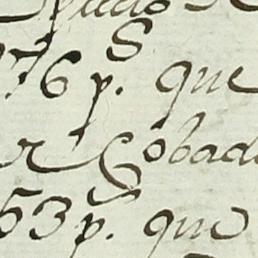 76 p.s que
r Cobad
53 p.s que